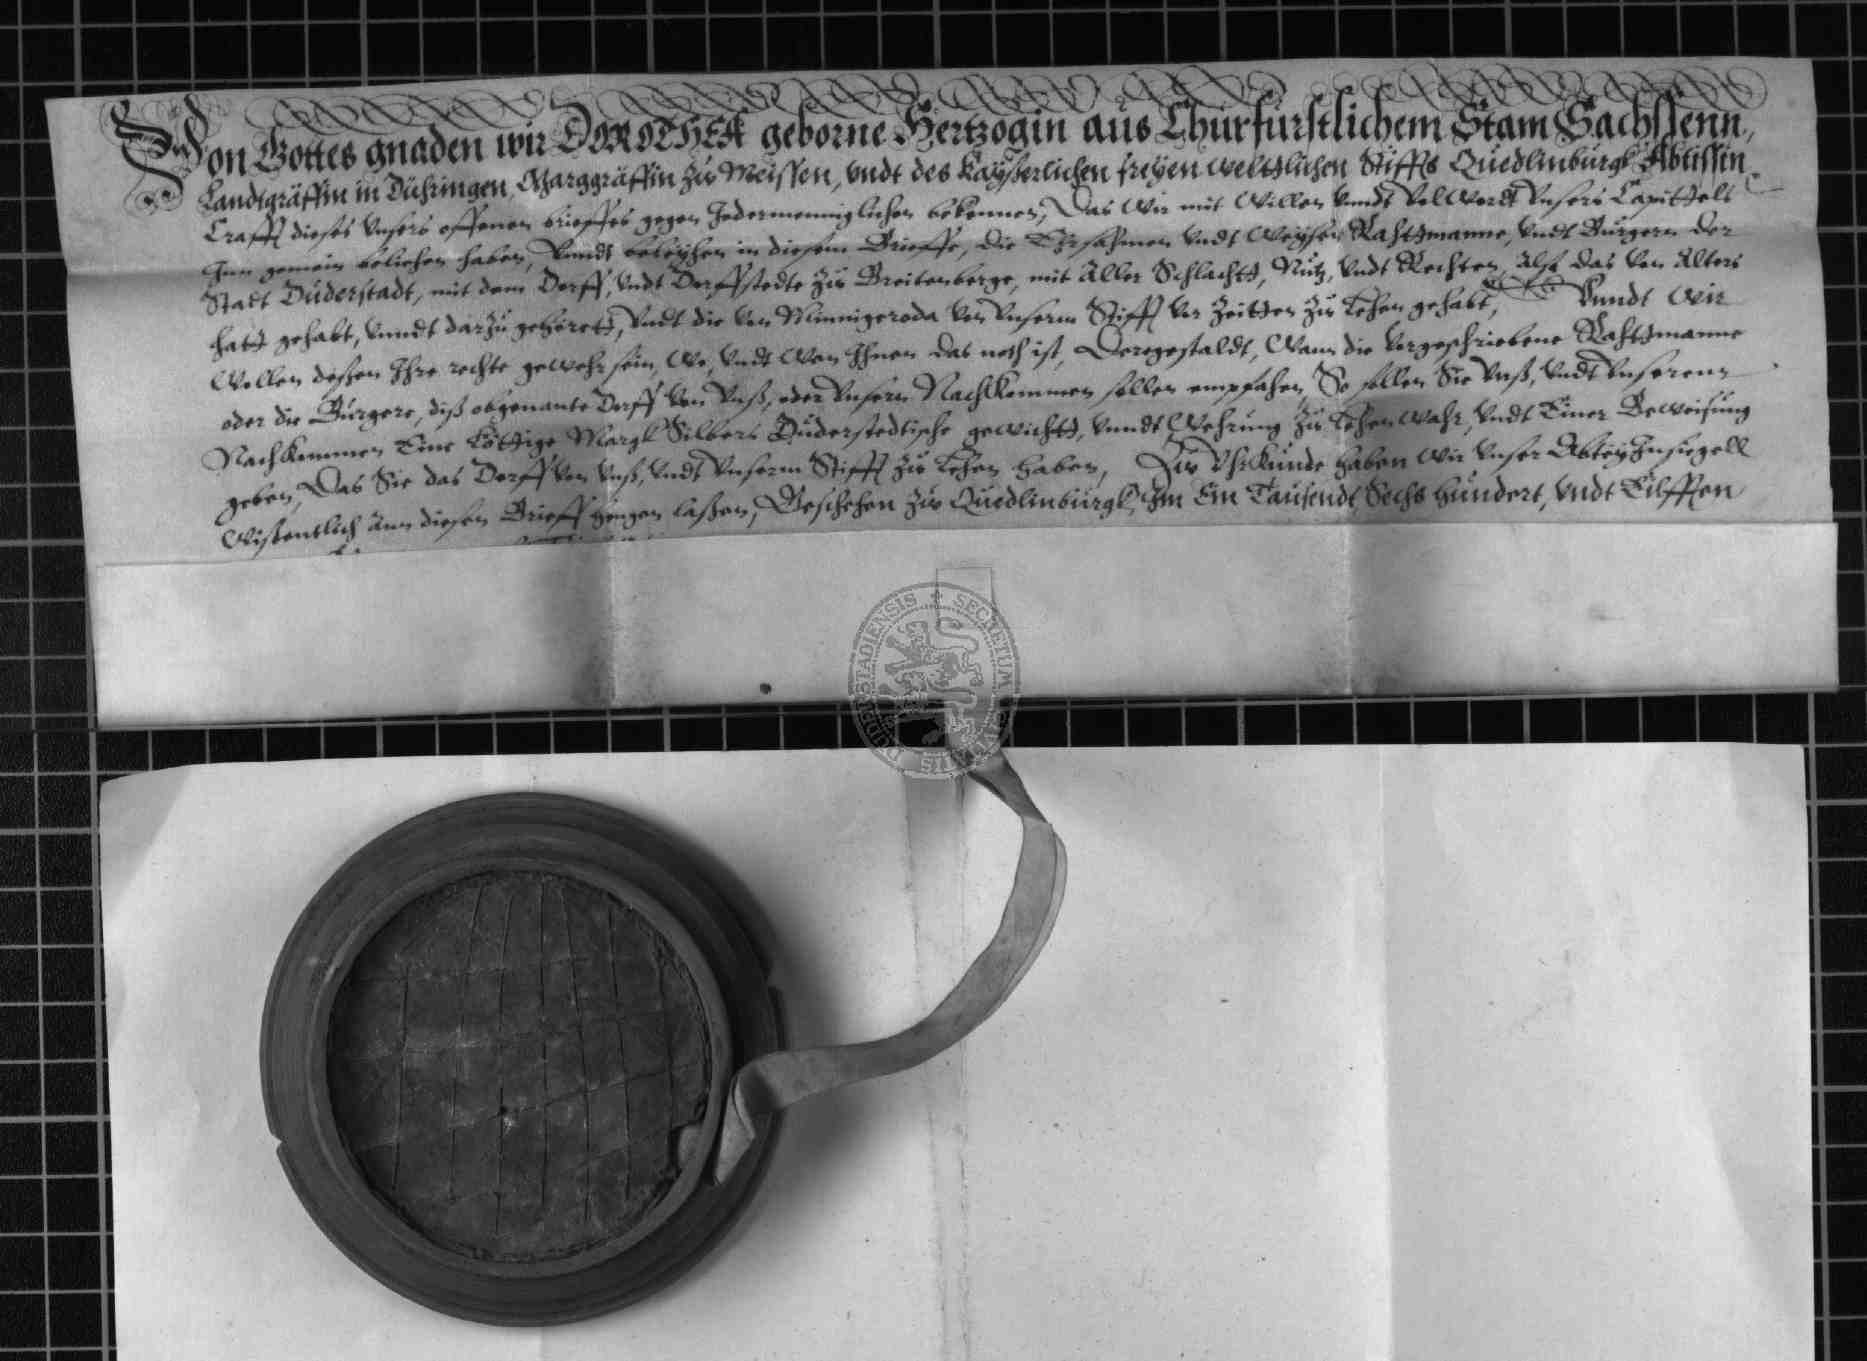 Von Gottes gnaden wir DOROTHEA geborne Hertzogin aus Churfürstlichem Stam Sachssenn,
Landtgräffin in Dühringen, Marggräffin zu Meissen, vndt des Kayserlichen freyen weltlichen Stiffts Quedlinburgk Abtissin
Crafft dieses vnsers offenen brieffes gegen Jedermenniglichen bekennen, Das Wir mit Willen vnndt Volwordt Vnsers Capittels
Inn gemein beliehen haben, Vnndt beleyhen in diesem Brieffe, die Ehrsahmen Vndt Weysen Rahttmanne, Vndt Bürgern der
Stadt Düderstadt, mit dem Dorff, Vndt Dorffstedte zu Breitenberge, mit Aller Schlachtt, Nutz, Vndt Rechten, Alß das Von Alters
hatt gehabt, Vnndt darzu gehörett, Vndt die Von Minnigeroda Von Vnserm Stifft Vor Zeitten zu Lehen gehabt, Vnndt Wir
Wollen deßen Ihre rechte gewehr sein, Wo, Vndt Wan Ihnen das noth ist, Deregestaldt, Wann die Vorgeschriebene Rahttmanne
oder die Bürgere, diß obgenante Dorff Von Vnß, oder Vnsern Nachkommen sollen empfahen, So sollen Sie Vnß, Vndt Vnserenn
Nachkommen Eine Löttige Margk Silbers Düderstedtische gewichtt, Vnndt Wehrung zu Lehen Wahr, Vndt Einer Beweisung
geben, Das Sie das Dorff Von Vnß, Vndt Vnserm Stifft zu Lehen haben, Zu Vhrkunde haben Wir Vnser Abtey Insiegell
Wißentlich Ann diesen Brieff hengen laßen, Geschehen zu Quedlinburgk, Im Ein Tausendt Sechs hundert, Vndt Eilfften
SECRETUM CIVITATIS DUDERSTADIENSIS